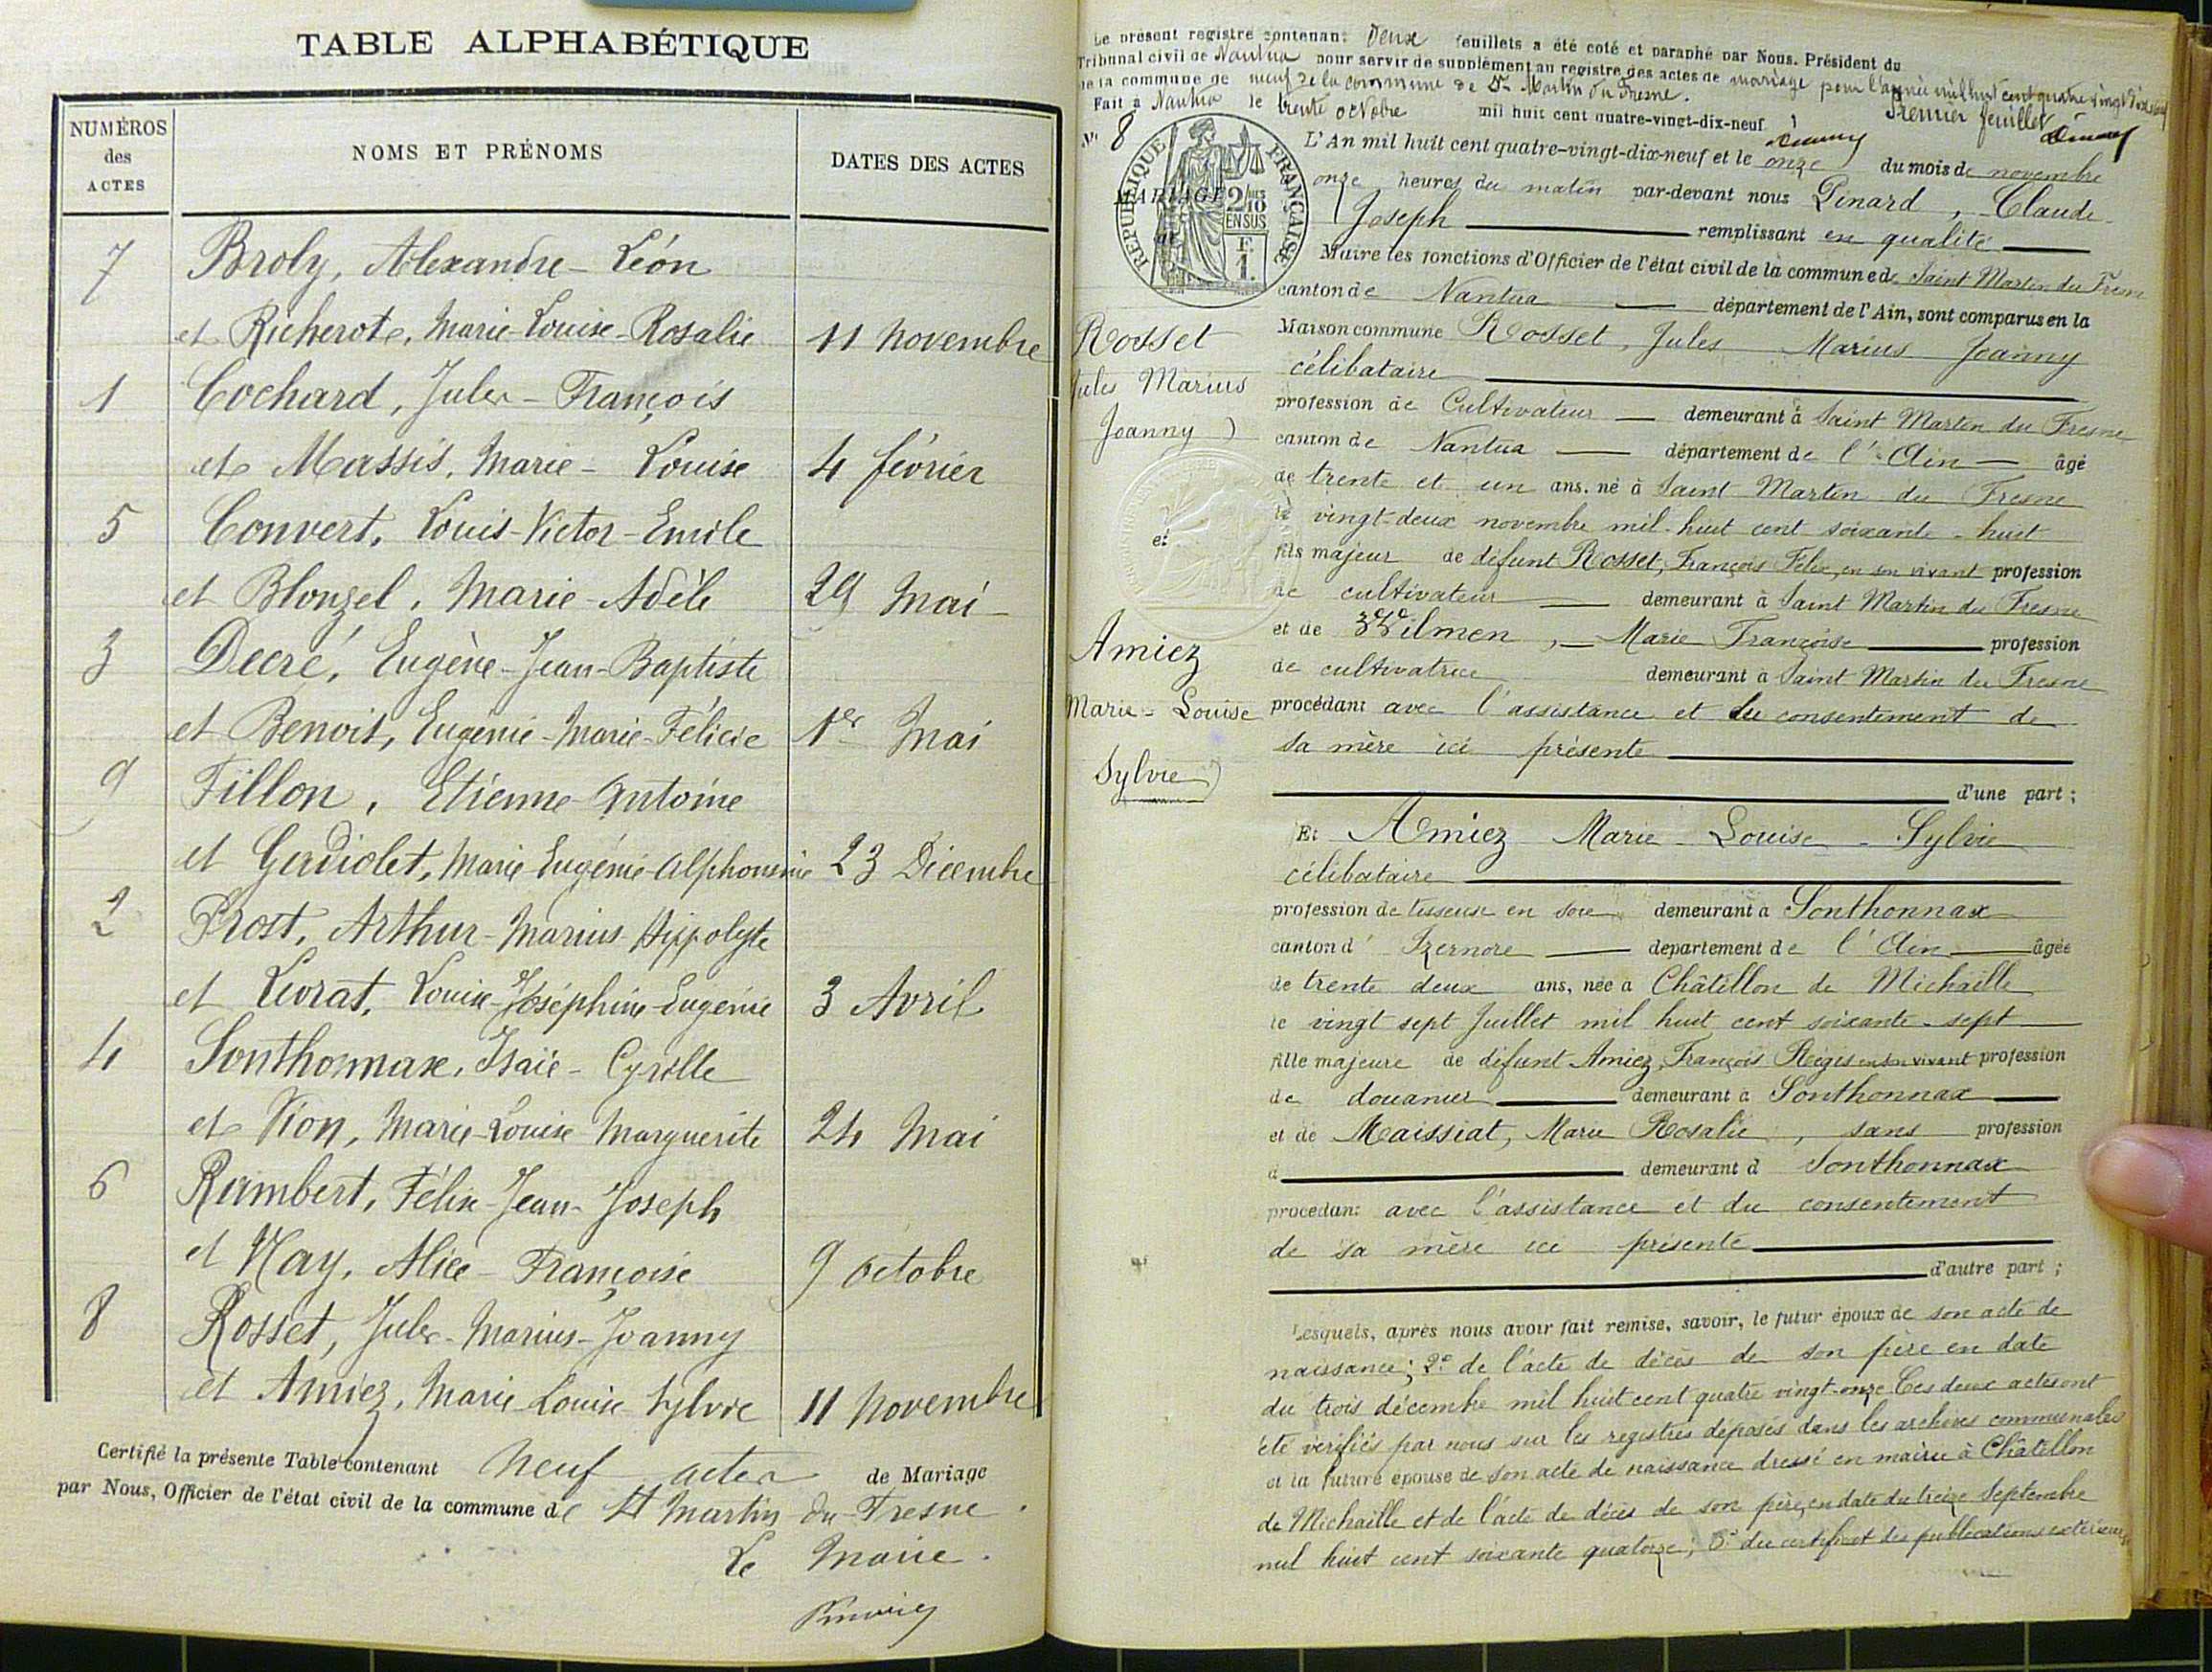 TABLE ALPHABÉTIQUE
NUMÉROS des ACTES
NOMS ET PRÉNOMS
DATES DES ACTES
7 Broly, Alexandre-Léon
et Richerot, Marie-Louise-Rosalie 11 Novembre
1 Cochard, Jules-François
et Massis, Marie-Louise 4 février
5 Convert, Louis-Victor-Emile
et Blonzel, Marie-Adèle 29 Mai
3 Decré, Eugène-Jean-Baptiste
et Benoit, Eugénie-Marie-Félicie 1er Mai
9 Fillon, Etienne-Antoine
et Gerdiolet, Marie Eugénie Alphonsine 23 Décembre
2 Prost, Arthur-Marius-Hippolyte
et Livrat, Louise-Joséphine-Eugénie 3 Avril
4 Sonthonnax, Isaïe-Cyrille
et Vion, Marie-Louise Marguerite 24 Mai
6 Rambert, Félix-Jean-Joseph
et Nay, Alice-Françoise 9 octobre
8 Rosset, Jules-Marius-Joanny
et Amiez, Marie-Louise Sylvie 11 Novembre
Certifié la présente Table contenant Neuf actes de Mariage
par Nous, Officier de l'état civil de la commune de St Martin-du-Fresne.
Le Maire.
Le présent registre contenant Deux feuillets a été coté et paraphé par Nous, Président du
Tribunal civil de Nantua pour servir de supplément au registre des actes de mariage pour l'année mil huit cent quatre vingt dix
neuf de la commune de St Martin du Fresne.
Fait à Nantua le trente octobre mil huit cent quatre-vingt-dix-neuf
Premier feuillet
No 8
MARIAGE
de
RÉPUBLIQUE FRANÇAISE
2/10 EN SUS
1 F.
Rosset
Jules Marius
Joanny
et
Amiez
Marie-Louise
Sylvie
L'An mil huit cent quatre-vingt-dix-neuf et le onze du mois de novembre
à onze heures du matin par-devant nous Pinard, Claude
Joseph remplissant en qualité
Maire les fonctions d'Officier de l'état civil de la commune de Saint Martin du Fresne
canton de Nantua département de l'Ain, sont comparus en la
Maison commune Rosset, Jules Marius Joanny
célibataire
profession de Cultivateur demeurant à Saint Martin du Fresne
canton de Nantua département de l'Ain âgé
de trente et un ans, né à Saint Martin du Fresne
le vingt-deux novembre mil-huit cent soixante-huit
fils majeur de défunt Rosset, François Félix, en son vivant profession
de cultivateur demeurant à Saint Martin du Fresne
et de Wilmen, Marie Françoise profession
de cultivatrice demeurant à Saint Martin du Fresne
procédant avec l'assistance et du consentement de
sa mère ici présente
d'une part ;
Et Amiez Marie-Louise-Sylvie
célibataire
profession de tisseuse en soie demeurant à Sonthonnax
canton d'Izernore département de l'Ain âgée
de trente deux ans, née à Châtillon de Michaille
le vingt sept Juillet mil huit cent soixante-sept
fille majeure de défunt Amiez, François Régis en son vivant profession
de douanier demeurant à Sonthonnax
et de Maissiat, Marie Rosalie, sans profession
d demeurant à Sonthonnax
procédant avec l'assistance et du consentement
de sa mère ici présente
d'autre part ;
Lesquels, après nous avoir fait remise, savoir, le futur époux de son acte de
naissance; 2° de l'acte de décès de son père en date
du trois décembre mil huit cent quatre vingt-onze Ces deux actes ont
été vérifiés par nous sur les registres déposés dans les archives communales
et la future épouse de son acte de naissance dressé en mairie à Châtillon
de Michaille et de l'acte de décès de son père, en date du treize Septembre
mil huit cent soixante quatorze; 3° du certificat des publications extérieures